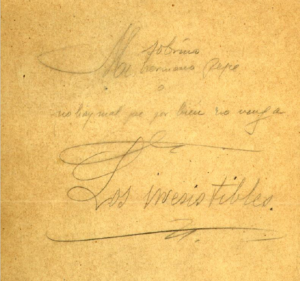 sobrino
Mi hermana Pepa
o
no hay mal que por bien no venga
Los irresistibles.